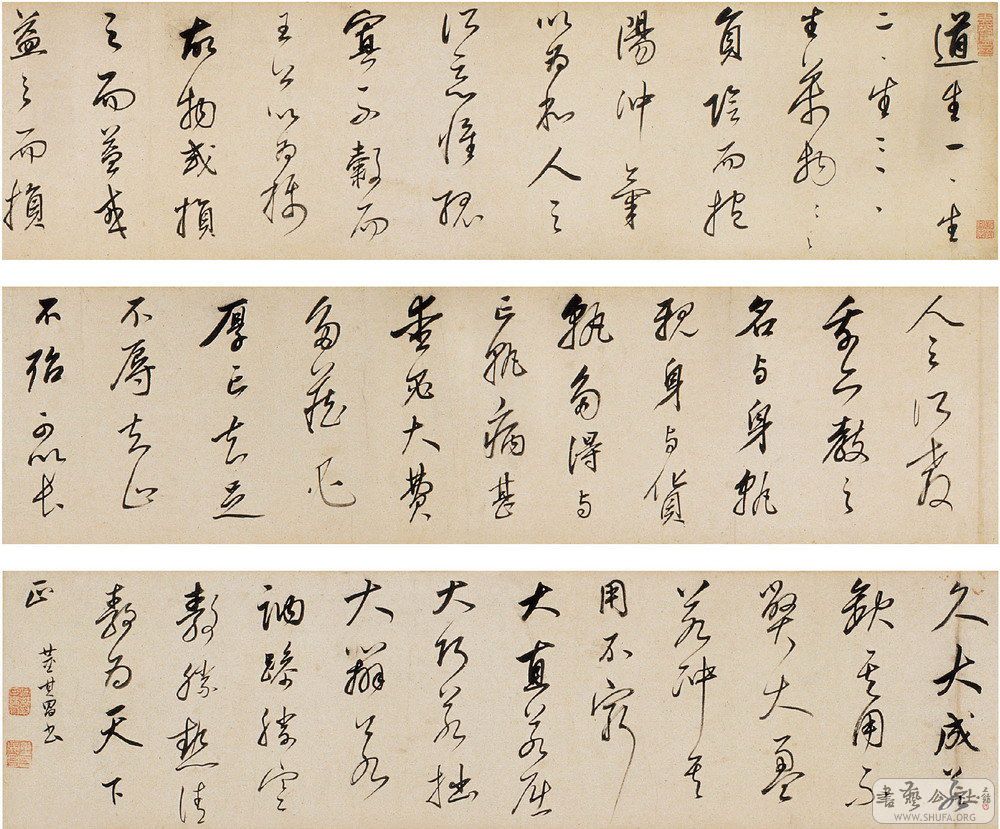 道生一、生
二、生三、
生萬物、、
負陰而抱
陽沖氣
以為和人之
所惡惟孤
寡不穀而
王公以為稱
故物或損
之而益或
益之而損
人之所教
我亦教之
名与身孰
親身与貨
孰多得与
亡孰病甚
愛必大費
多藏必
厚亡知足
不辱知止
不殆可以長
久大成若
缺其用不
弊大盈
若沖其
用不窮
大直若屈
大巧若拙
大辯若
訥躁勝寒
靜勝熱清
靜為天下
正
董其昌書
書藝公社
WWW.SHUFA.ORG